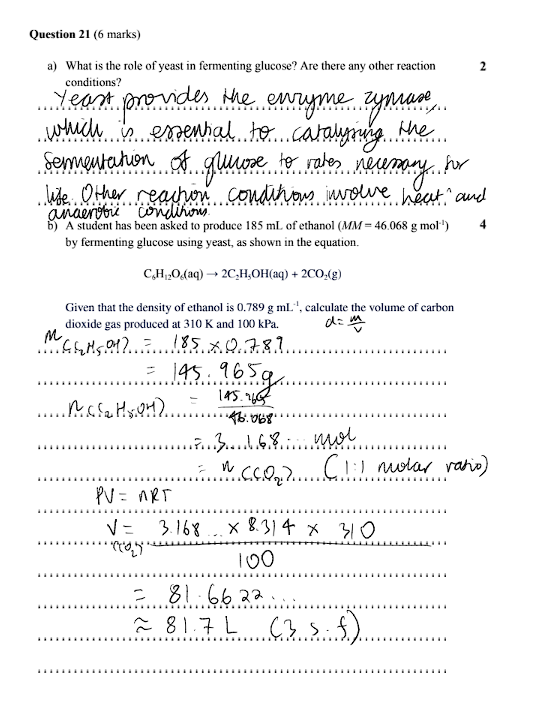 Question 21 (6 marks)
a) What is the role of yeast in fermenting glucose? Are there any other reaction 2
conditions?
Yeast provides the enzyme zymase,
which is essential to catalysing the
fermentation of glucose to rates necessary for
life. Other reaction conditions involve heat and
anaerobic conditions.
b) A student has been asked to produce 185 mL of ethanol (MM = 46.068 g mol⁻¹) 4
by fermenting glucose using yeast, as shown in the equation.
C₆H₁₂O₆(aq) → 2C₂H₅OH(aq) + 2CO₂(g)
Given that the density of ethanol is 0.789 g mL⁻¹, calculate the volume of carbon
dioxide gas produced at 310 K and 100 kPa. d = m/v
m(C₂H₅OH) = 185 × 0.789
= 145.965g
n(C₂H₅OH) = 145.965/46.068
= 3.168... mol
= n(CO₂) (1:1 molar ratio)
PV = nRT
V(CO₂) = 3.168... × 8.314 × 310
100
= 81.6622...
≈ 81.7 L (3 s.f)